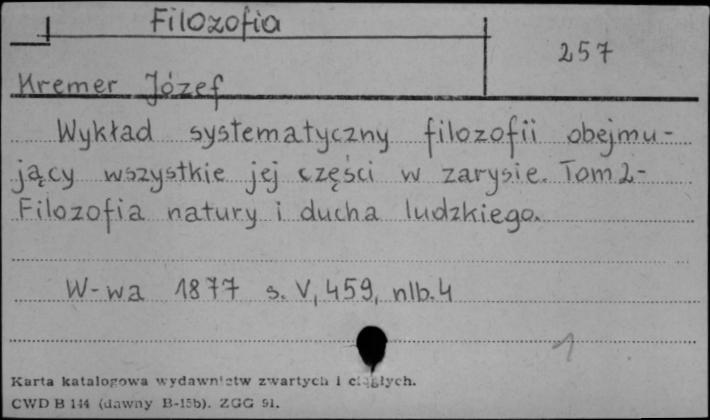 Filozofia
257
Kremer Józef
Wykład systematyczny filozofii obejmu-
jący wszystkie jej części w zarysie. Tom 2-
Filozofia natury i ducha ludzkiego.
W-wa 1877 s. V, 459, nlb. 4
1
Karta katalogowa wydawnictw zwartych i ciągłych.
CWD B 144 (dawny B-15b). ZGG 91.